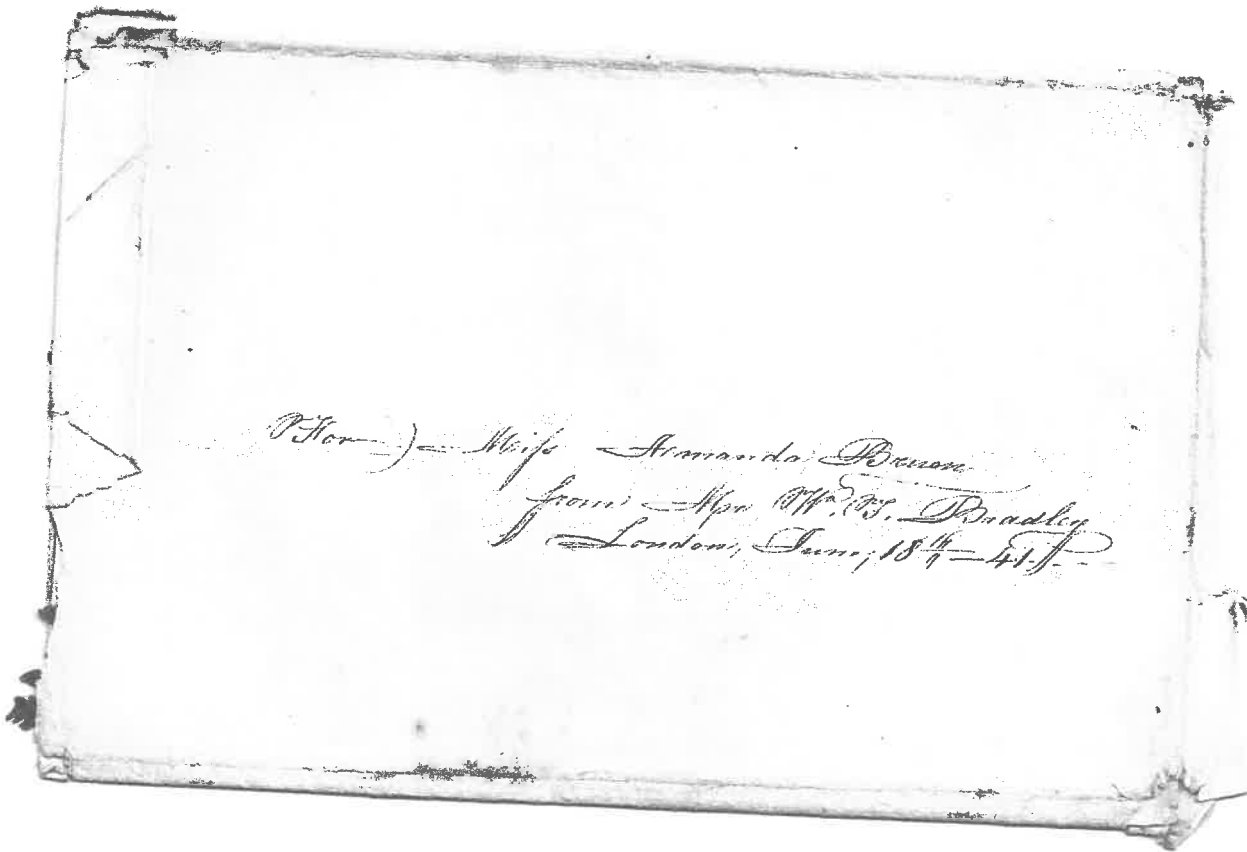 For) — Miss Armanda Bruen
from Mr. Wm. T. Bradley
London, June, 18th — 41.